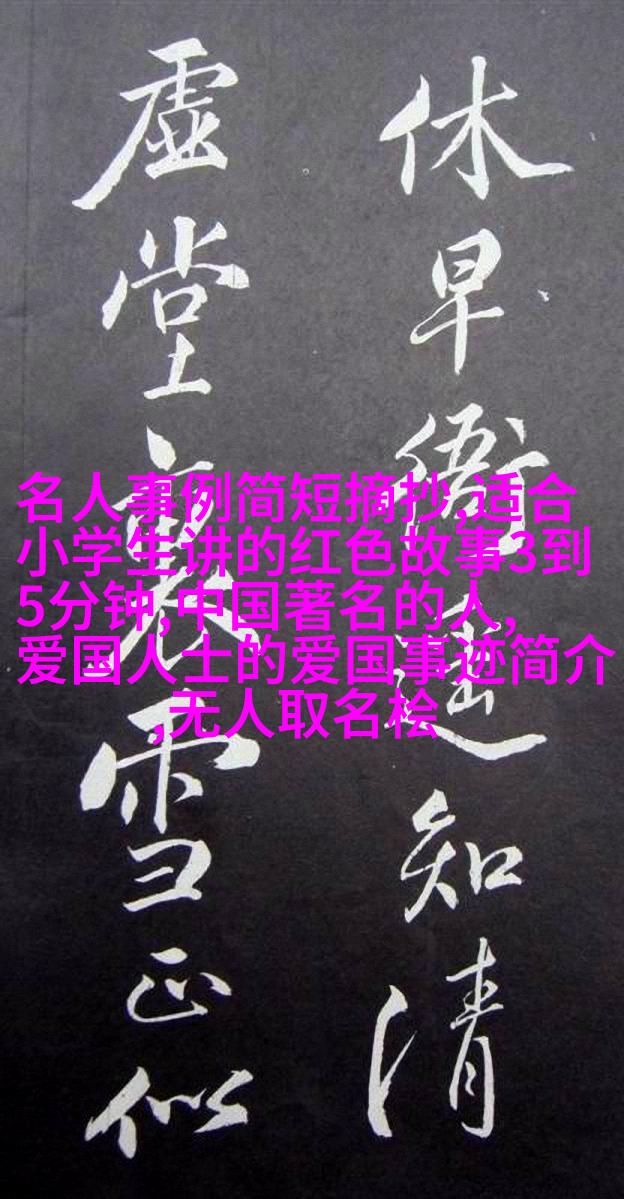 休早衙知清
虛堂雪正似
名人事例简短摘抄,适合
小学生讲的红色故事3到
5分钟,中国著名的人,
爱国人士的爱国事迹简介
,无人取名桧